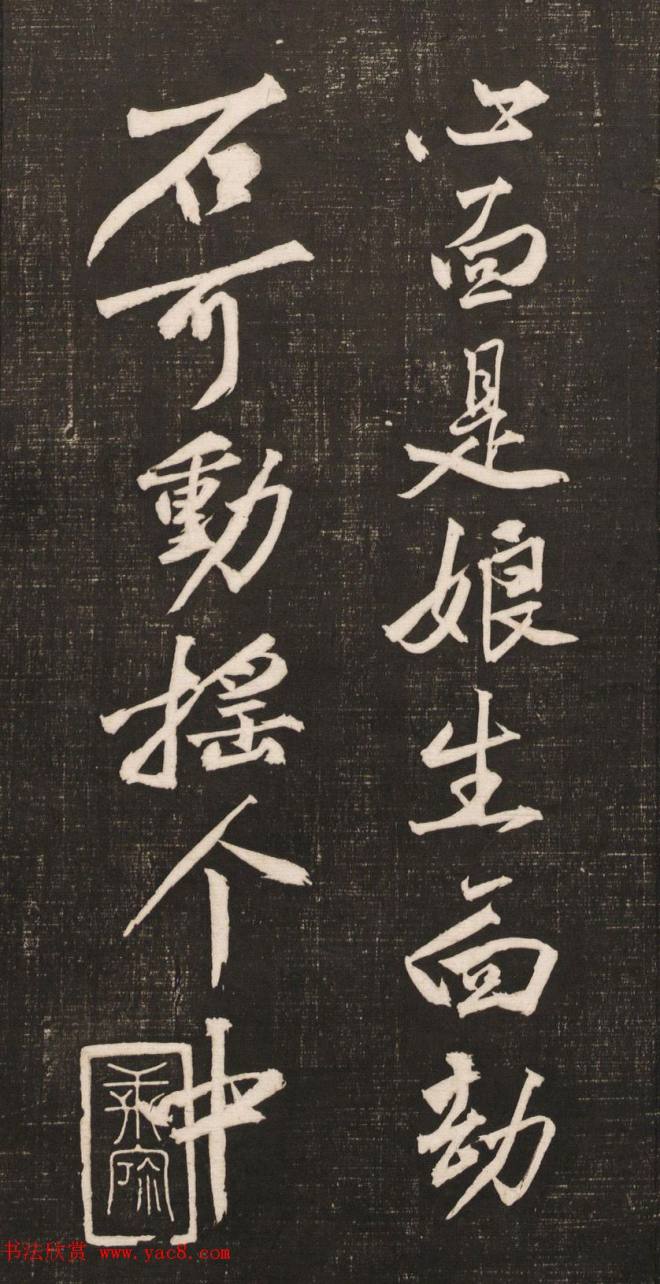 面是娘生面劫
石可動摇个中
书法欣赏 www.yac8.com